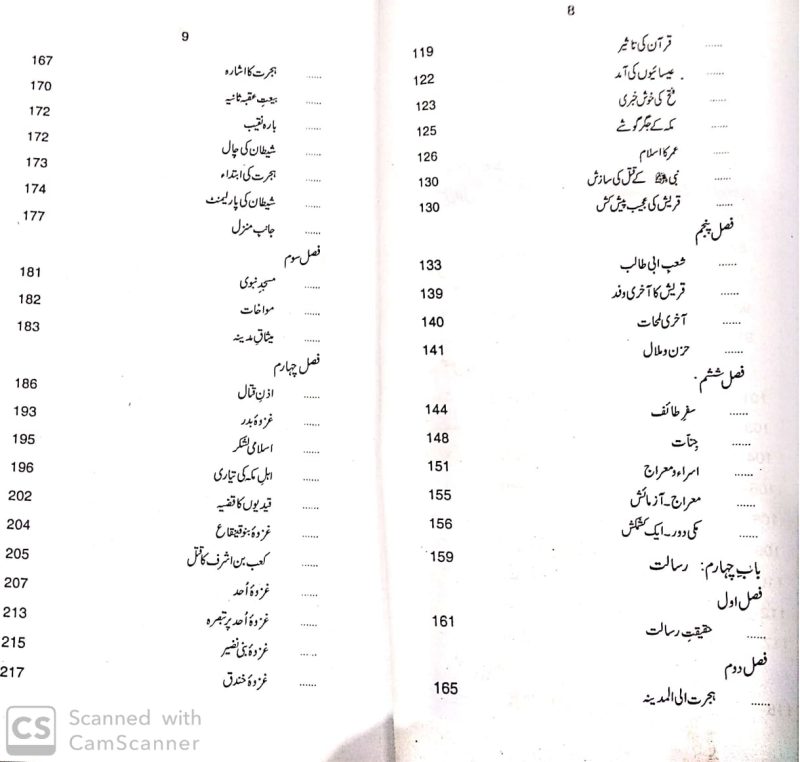 8
...... قرآن کی تاثیر 119
...... عیسائیوں کی آمد 122
...... فتح کی خوش خبری 123
...... مکہ کے جگر گوشے 125
...... عمر کا اسلام 126
...... نبی ﷺ کے قتل کی سازش 130
...... قریش کی عجیب پیش کش 130
فصل پنجم
...... شعب ابی طالب 133
...... قریش کا آخری وفد 139
...... آخری لمحات 140
...... حزن و ملال 141
فصل ششم
...... سفرِ طائف 144
...... جنّات 148
...... اسراء و معراج 151
...... معراج۔ آزمائش 155
...... مکی دور۔ ایک کشمکش 156
بابِ چہارم: رسالت 159
فصل اول
...... حقیقتِ رسالت 161
فصل دوم
...... ہجرت الی المدینہ 165
9
...... ہجرت کا اشارہ 167
...... بیعتِ عقبہ ثانیہ 170
...... بارہ نقیب 172
...... شیطان کی چال 172
...... ہجرت کی ابتداء 173
...... شیطان کی پارلیمنٹ 174
...... جانبِ منزل 177
فصل سوم
...... مسجدِ نبوی 181
...... مواخات 182
...... میثاقِ مدینہ 183
فصل چہارم
...... اذنِ قتال 186
...... غزوۂ بدر 193
...... اسلامی لشکر 195
...... اہلِ مکہ کی تیاری 196
...... قیدیوں کا قضیہ 202
...... غزوۂ بنو قینقاع 204
...... کعب بن اشرف کا قتل 205
...... غزوۂ اُحد 207
...... غزوۂ اُحد پر تبصرہ 213
...... غزوۂ بنی نضیر 215
...... غزوۂ خندق 217
CS Scanned with
CamScanner